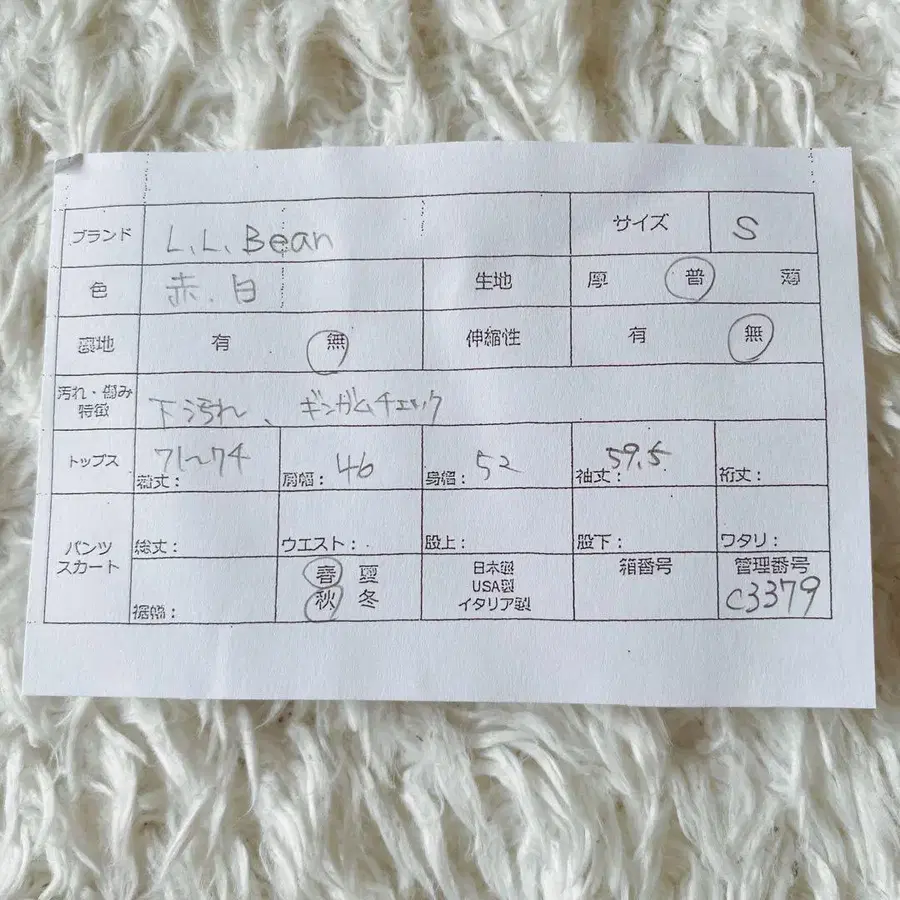 ブランド L.L.Bean サイズ S
色 赤.白 生地 厚 普 薄
裏地 有 無 伸縮性 有 無
汚れ・傷み
特徴 下汚れ、ギンガムチェック
トップス 着丈: 71~74 肩幅: 46 身幅: 52 袖丈: 59.5 裄丈:
パンツ
スカート 総丈: ウエスト: 股上: 股下: ワタリ:
裾幅: 春 夏
秋 冬
日本製
USA製
イタリア製
箱番号
管理番号
C3379